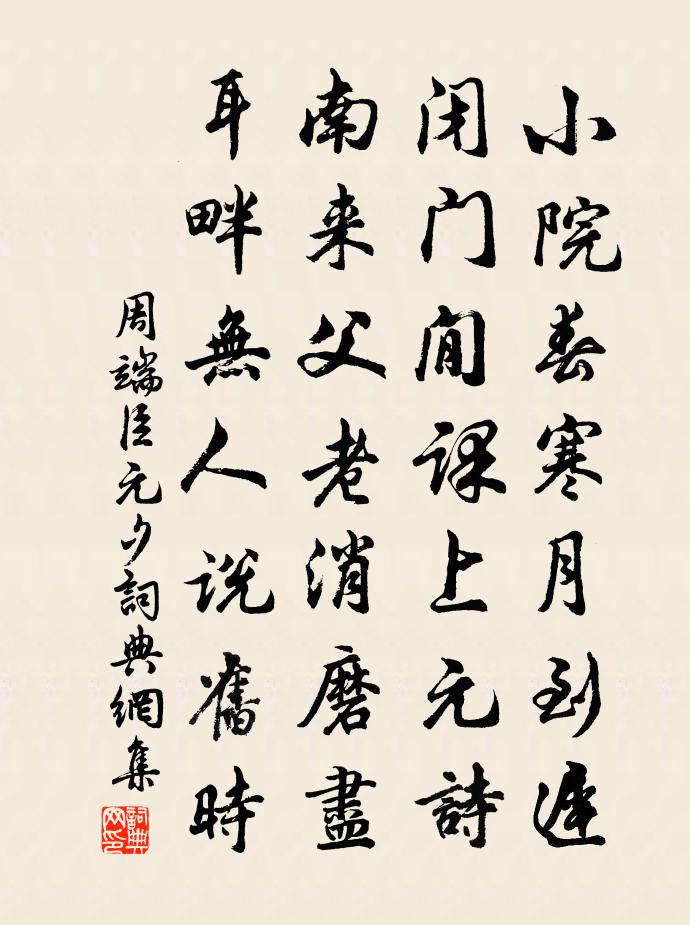 小院春寒月到遲
闭门閒課上元詩
南来父老消磨盡
耳畔無人説舊時
周端臣元夕詞典網集
詞典网印